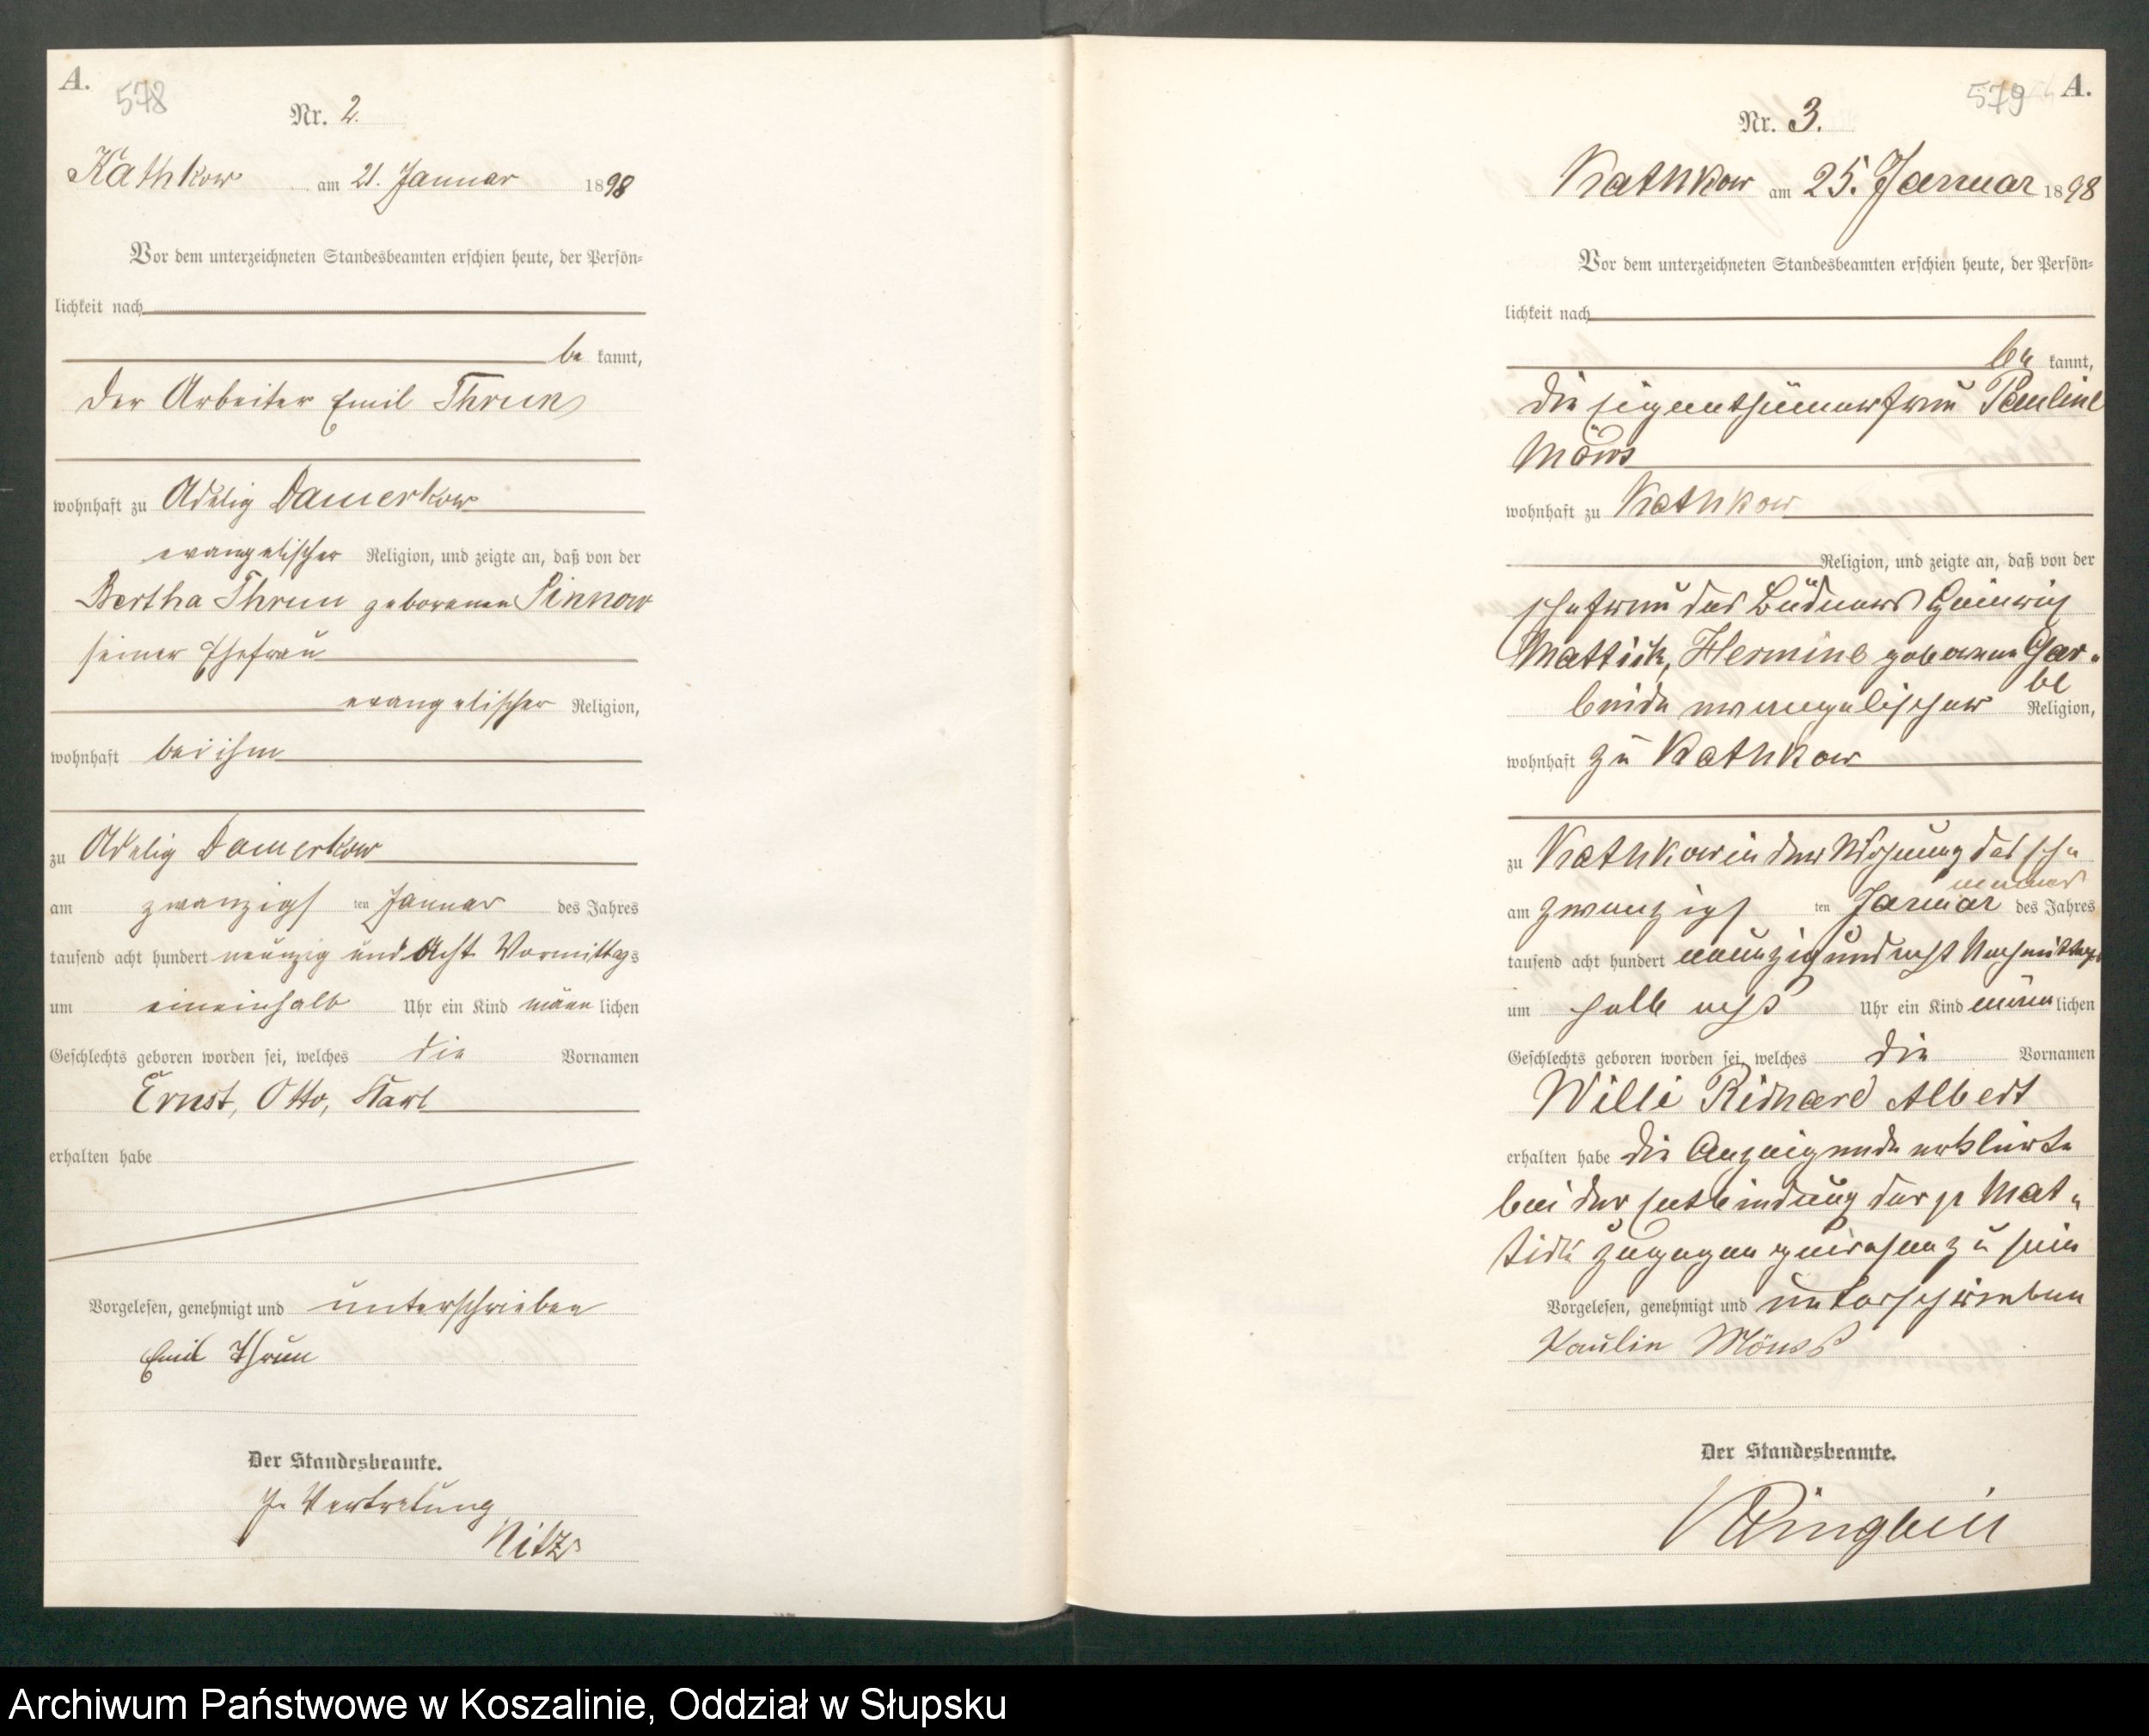 A.
578
Nr. 2.
Kathkow am 21. Januar 1898
Vor dem unterzeichneten Standesbeamten erschien heute, der Persön=
lichkeit nach
be kannt,
der Arbeiter Emil Thrun
wohnhaft zu Adelig Damerkow
evangelischer Religion, und zeigte an, daß von der
Bertha Thrun geborenen Pinnow
seiner Ehefrau
evangelischer Religion,
wohnhaft bei ihm
zu Adelig Damerkow
am zwanzigs ten Januar des Jahres
tausend acht hundert neunzig und acht Vormittags
um eineinhalb Uhr ein Kind männ lichen
Geschlechts geboren worden sei, welches die Vornamen
Ernst, Otto, Karl
erhalten habe
Vorgelesen, genehmigt und unterschrieben
Emil Thrun
Der Standesbeamte.
In Vertretung
Nitz
579 A.
Nr. 3.
Kathkow am 25. Januar 1898
Vor dem unterzeichneten Standesbeamten erschien heute, der Persön=
lichkeit nach
be kannt,
die Eigenthümerfrau Pauline
Möws
wohnhaft zu Kathkow
Religion, und zeigte an, daß von der
Ehefrau des Büdners Heinrich
Mattick, Hermine geborene Gar-
be
beide evangelischer Religion,
wohnhaft zu Kathkow
zu Kathkow in der Wohnung des Ehe
mannes
am zwanzigs ten Januar des Jahres
tausend acht hundert neunzig und acht Nachmittags
um halb acht Uhr ein Kind männ lichen
Geschlechts geboren worden sei, welches die Vornamen
Willi Richard Albert
erhalten habe die Anzeigende erklärte
bei der Entbindung der p Mat-
tick zugegen gewesen zu sein
Vorgelesen, genehmigt und unterschrieben
Paulin Mönß
Der Standesbeamte.
Archiwum Państwowe w Koszalinie, Oddział w Słupsku